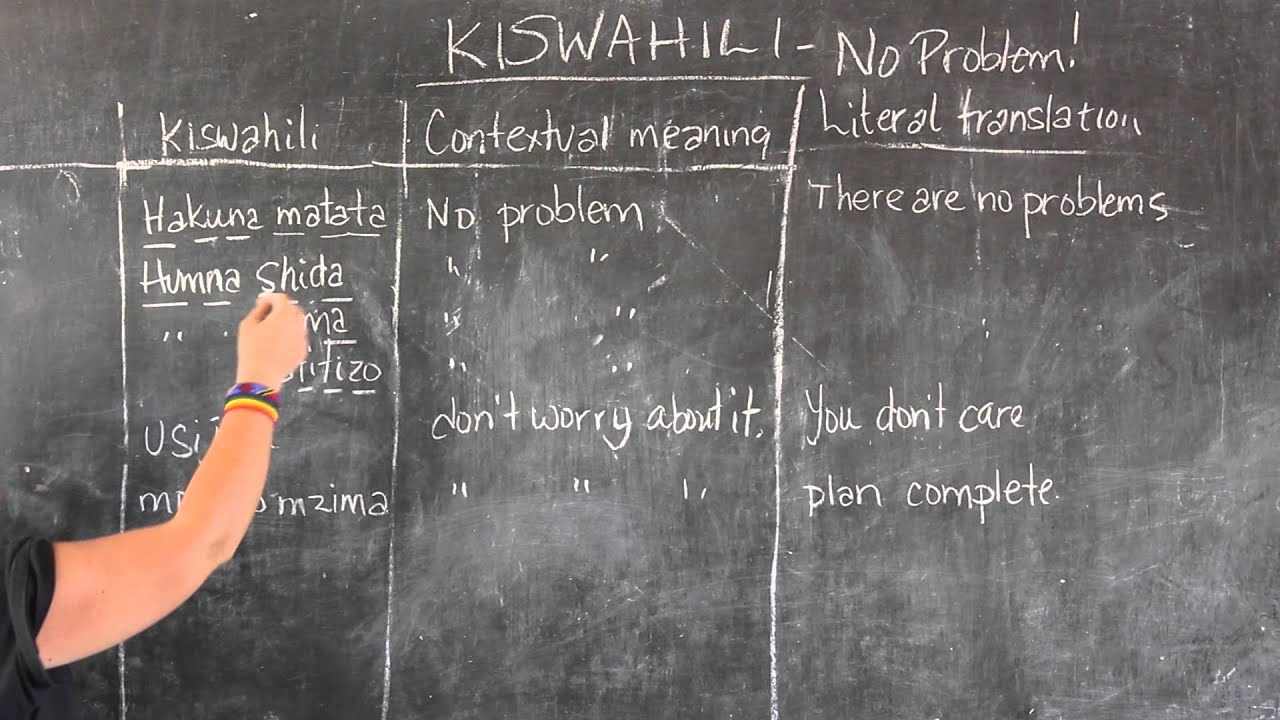 KISWAHILI - No Problem!
Kiswahili Contextual meaning Literal translation
Hakuna matata No problem There are no problems
Humna shida " "
" " "
" "
don't worry about it. You don't care
mzima " " " plan complete.